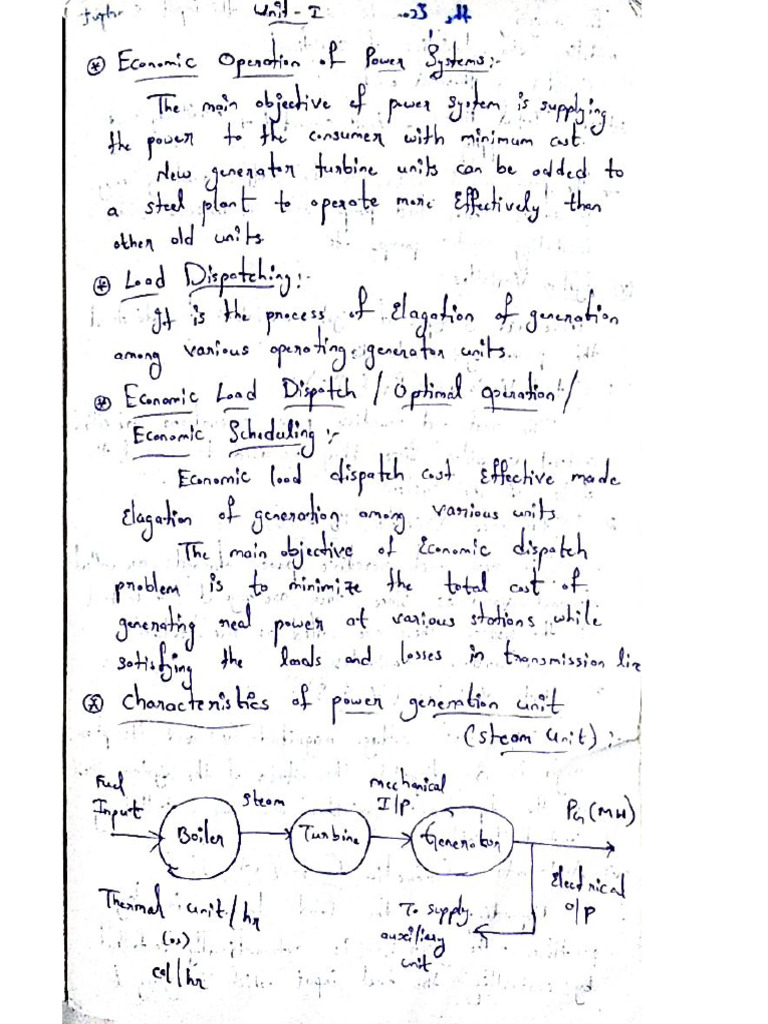 Unit - I
Economic Operation of Power Systems :-
The main objective of power system is supplying
the power to the consumer with minimum cost.
New generator turbine units can be added to
a steel plant to operate more Effectively than
other old units.
Load Dispatching :-
It is the process of Elagation of generation
among various operating generator units.
Economic Load Dispatch / Optimal operation /
Economic Scheduling :-
Economic load dispatch cost effective made
Elagation of generation among various units
The main objective of Economic dispatch
problem is to minimize the total cost of
generating real power at various stations while
satisfying the loads and losses in transmission
Characteristics of power generation unit
(steam unit) :-
Fuel
Input
Boiler
steam
Turbine
mechanical
I/P.
Generator
PG (MW)
Electrical
O/P
To supply
auxiliary
unit
Thermal unit/hr
(or)
cal/hr